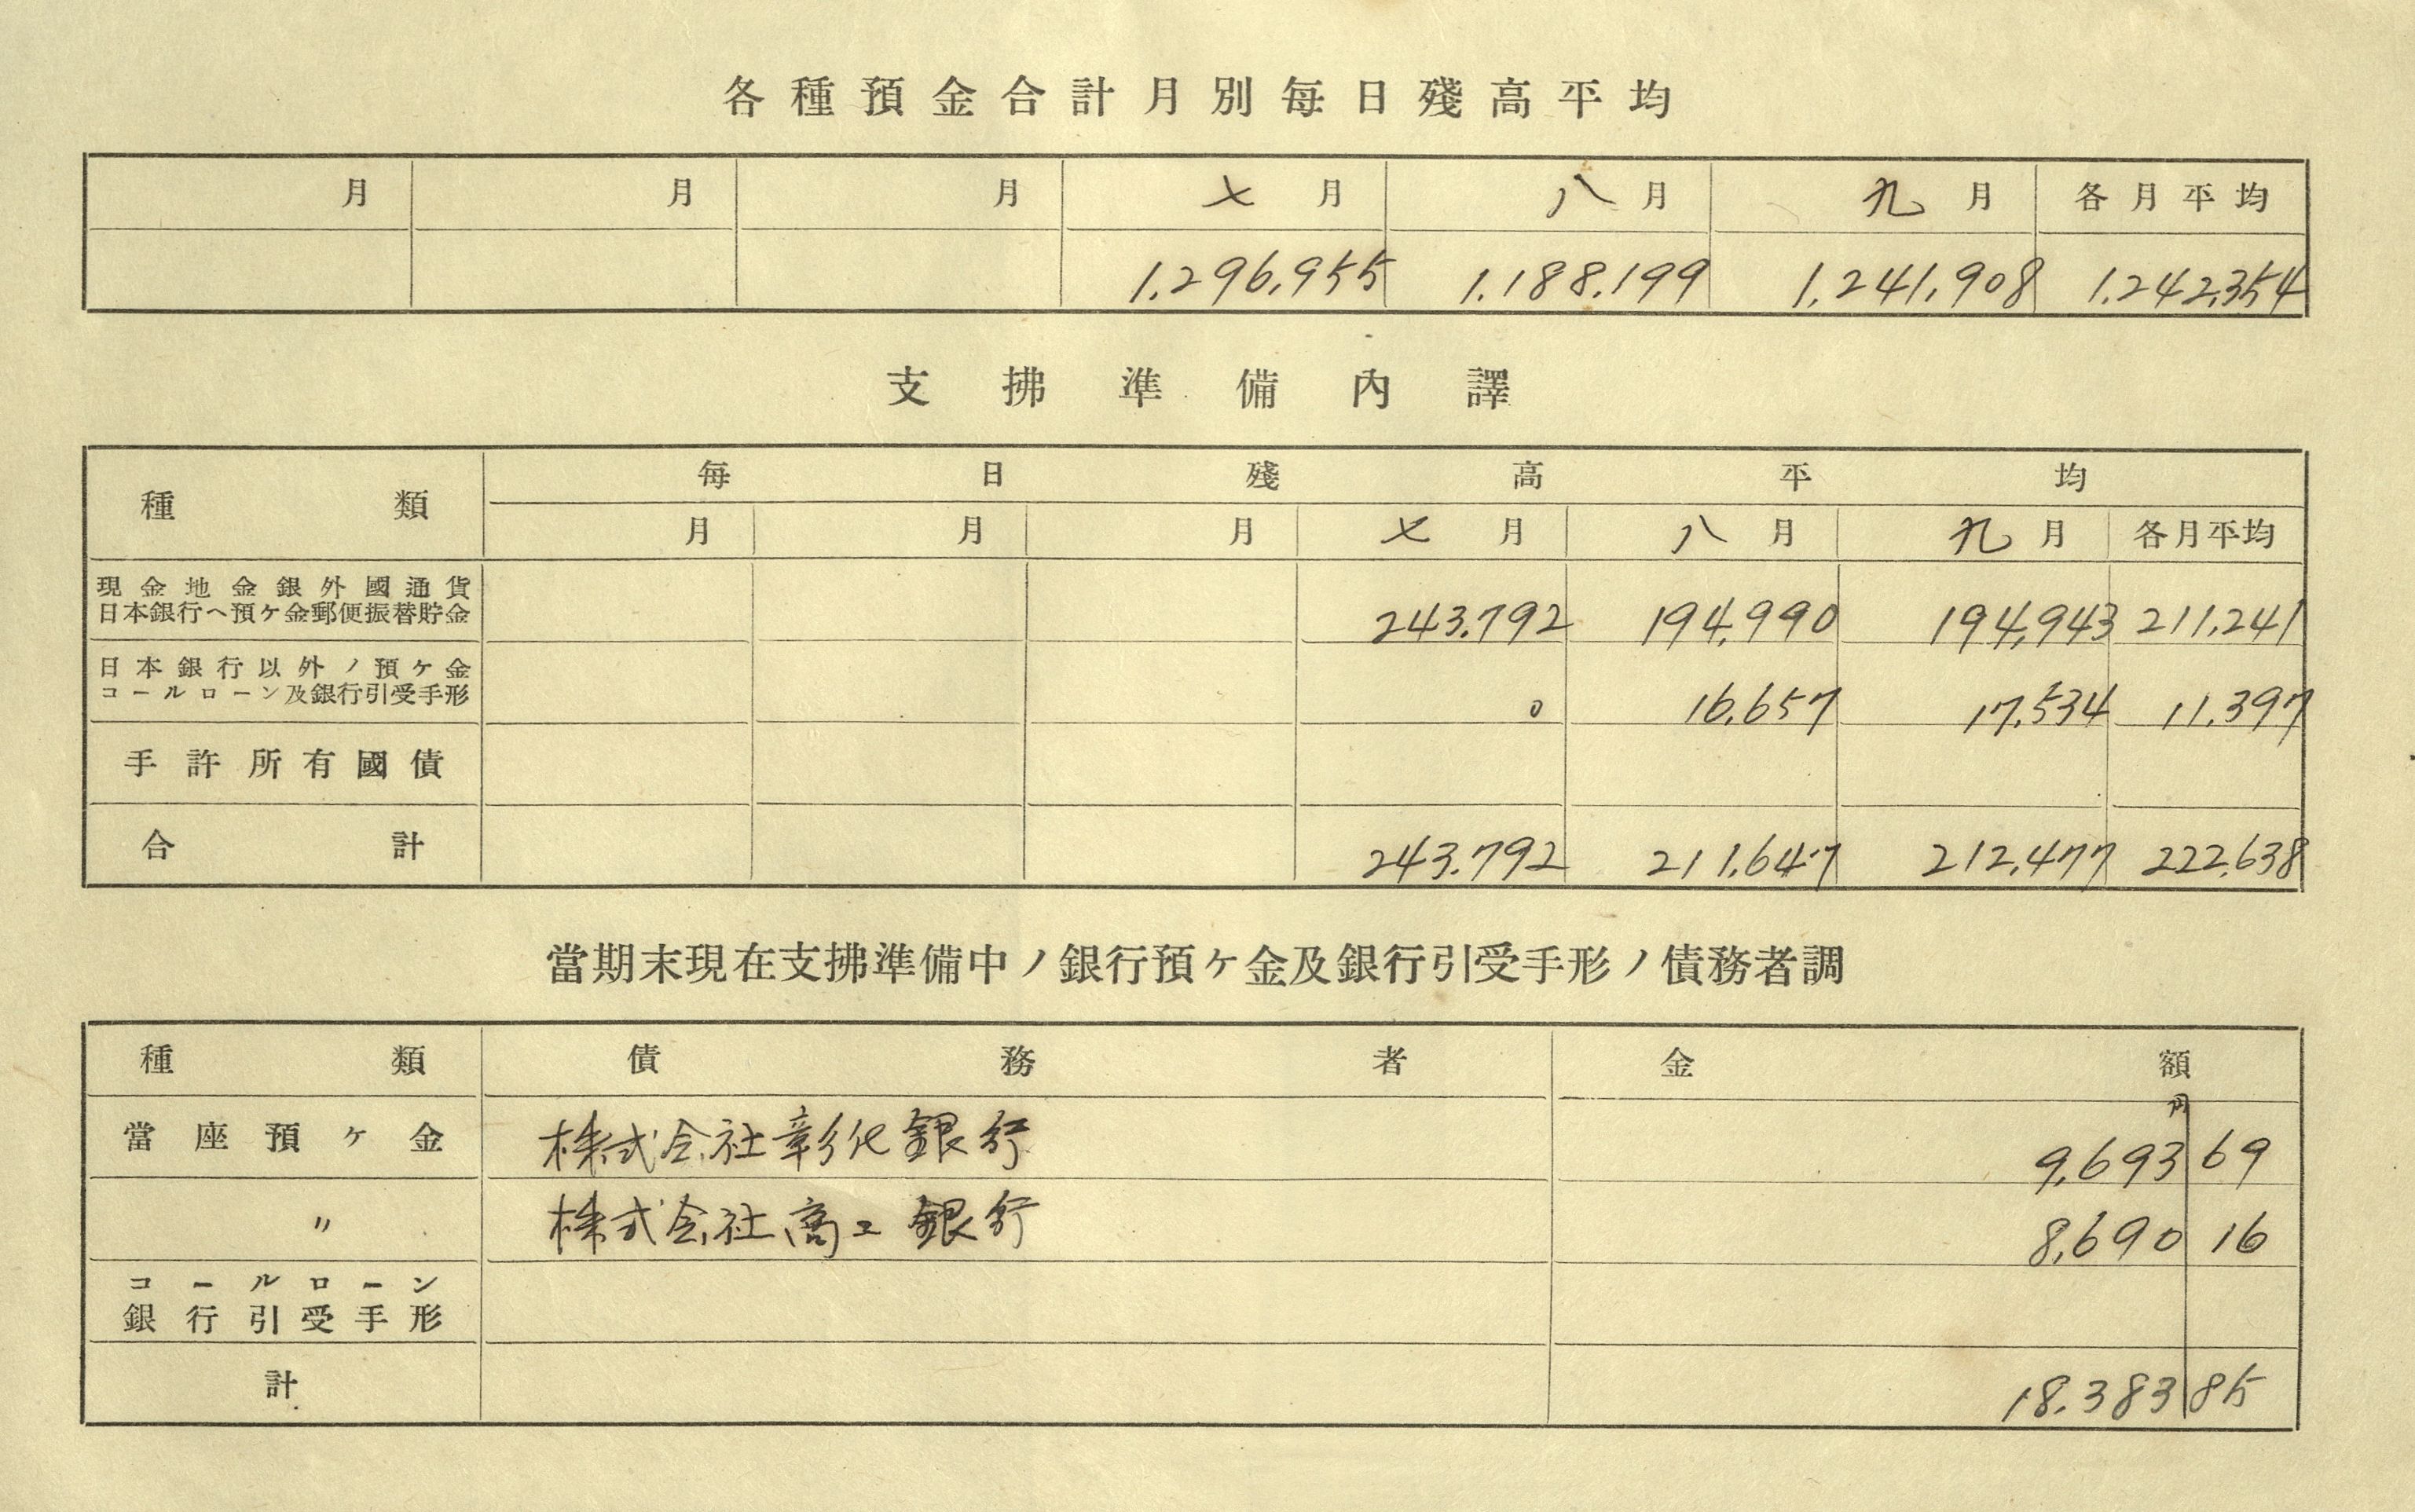 各種預金合計月別毎日殘高平均
月 月 月 七月 八月 九月 各月平均
1.296,955 1.188.199 1,241,908 1.242,354
支拂準備內譯
種類 每日殘高平均
月 月 月 七月 八月 九月 各月平均
現金地金銀外國通貨
日本銀行ヘ預ケ金郵便振替貯金 243.792 194,990 194,943 211,241
日本銀行以外ノ預ケ金
コールローン及銀行引受手形 0 16,657 17,534 11,397
手許所有國債
合計 243.792 211,647 212,477 222,638
當期末現在支拂準備中ノ銀行預ケ金及銀行引受手形ノ債務者調
種類 債務者 金額
當座預ケ金 株式会社彰化銀行 9,693円69
〃 株式会社商工銀行 8,690 16
コールローン
銀行引受手形
計 18.383 85